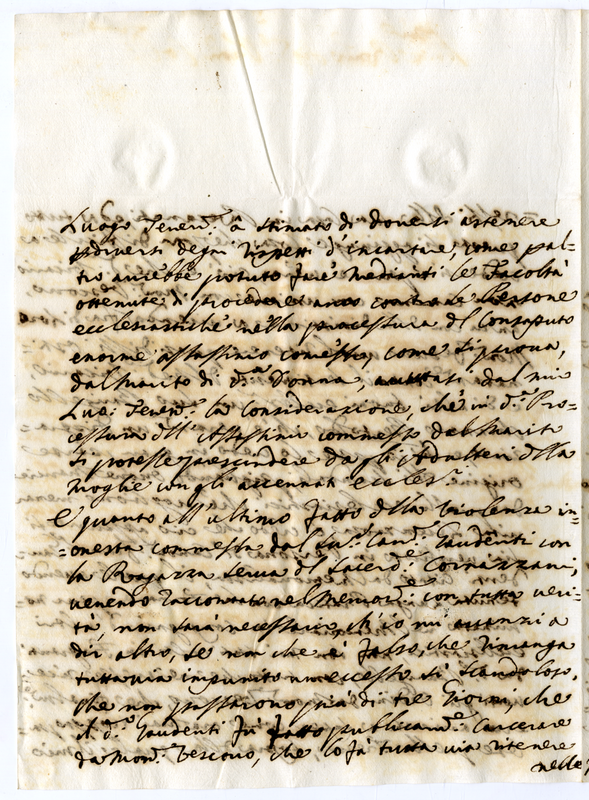 Luogo Tenen.te à stimato di doversi astenere
p diversi degni rispetti d'incartare, come pal=
tro avrebbe potuto fare medianti le Facoltà
ottenute di procedere anco contro le Persone
ecclesiastiche nella processura del Consaputo
enorme assassinio comesso, come si prova,
dal Marito di d.a Donna, dal mio
Luo: Tenen.te la Considerazione, che in d.a Pro=
cessura dell'Assassinio commesso dal Marito
si potesse prescindere dagli Adulteri della
Moglie con gli accennati eccles.ci
E quanto all'ultimo fatto della Violenza in=
=onesta commessa dal Can.co Gaudenti con
la Ragazza serva del Sacerd.e Cornazzani,
venendo raccontato nel Memor.e con tutta veri=
tà, non sarà necessario, ch'io mi avanzi a
dir altro, se non che è falso, che rimanga
tuttavia impunito un eccesso sì scandoloso,
che non passarono più di tre Giorni, che
il d.o Gaudenti fu fatto publicam.e Carcerare
da Mon.r Vescovo, che lo fa tutta via ritenere
nelle